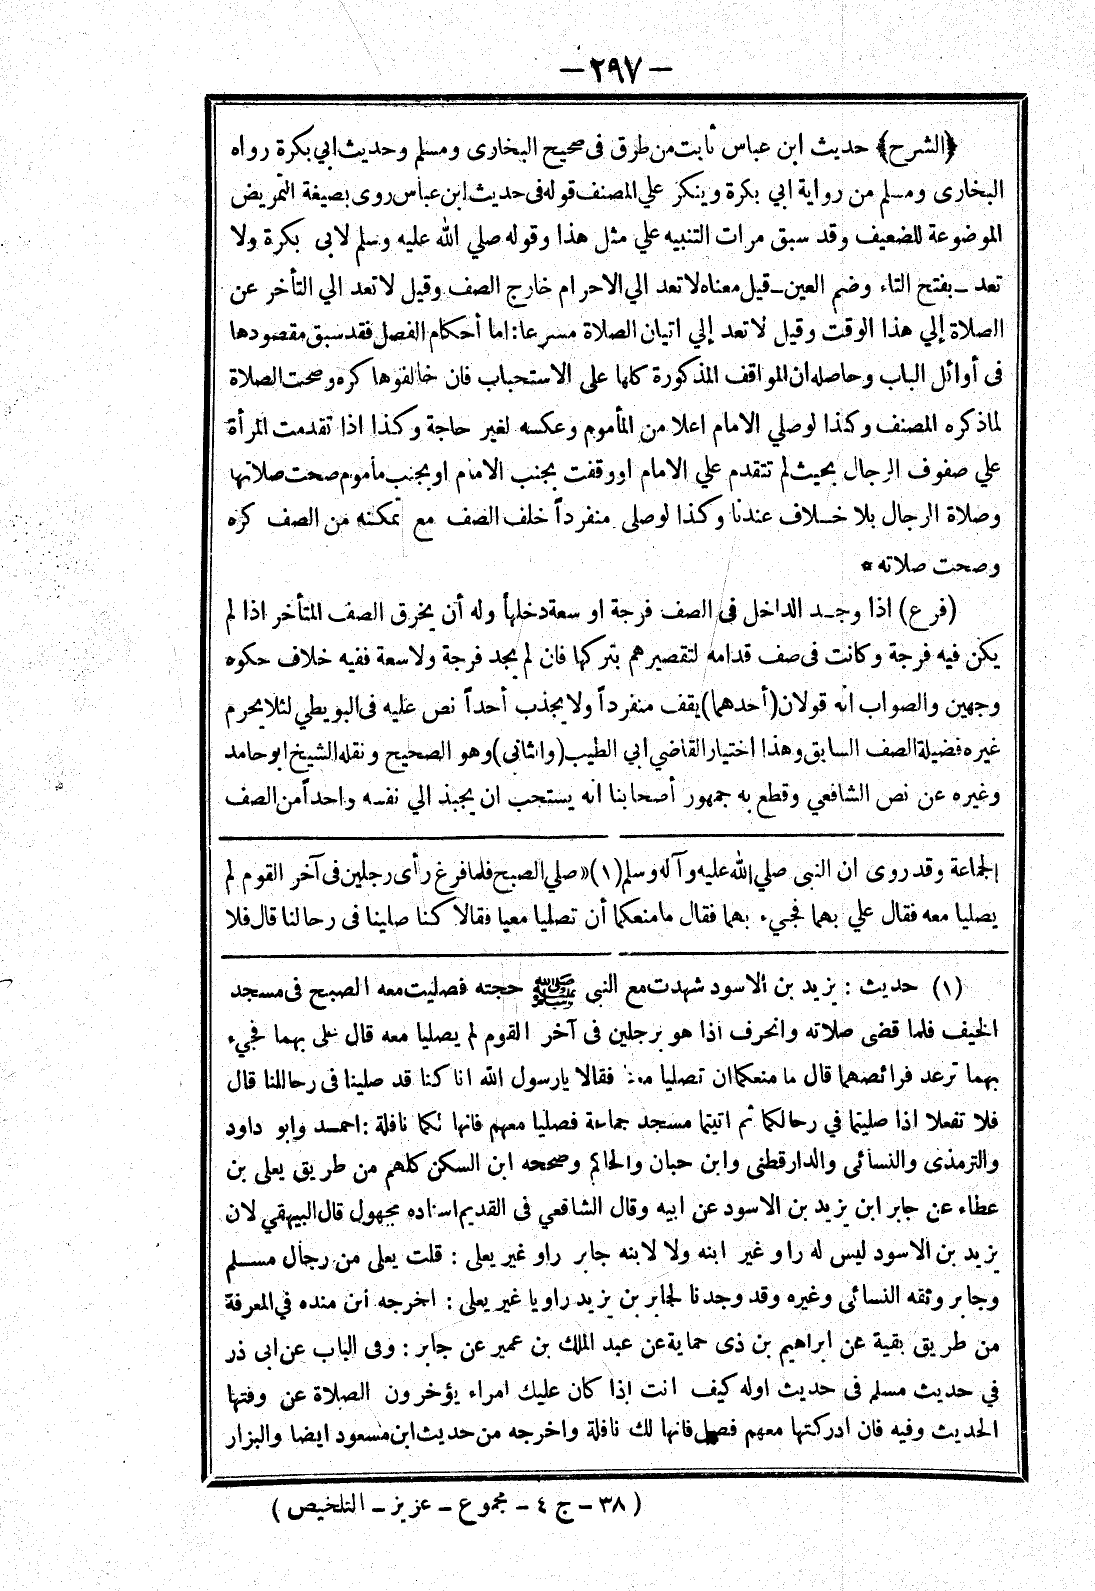 -٢٩٧-
﴿الشرح﴾ حديث ابن عباس ثابت من طرق فى صحيح البخارى ومسلم وحديث ابي بكرة رواه
البخارى ومسلم من رواية ابي بكرة وينكر علي المصنف قوله فى حديث ابن عباس روى بصيغة التمريض
الموضوعة للضعيف وقد سبق مرات التنبيه علي مثل هذا وقوله صلي الله عليه وسلم لابى بكرة ولا
تعد ـ بفتح التاء وضم العين ـ قيل معناه لا تعد الي الاحرام خارج الصف وقيل لا تعد الي التأخر عن
الصلاة إلي هذا الوقت وقيل لا تعد إلي اتيان الصلاة مسرعا: اما أحكام الفصل فقد سبق مقصودها
فى أوائل الباب وحاصله ان المواقف المذكورة كلها على الاستحباب فان خالفوها كره وصحت الصلاة
لماذكره المصنف وكذا لوصلي الامام اعلا من المأموم وعكسه لغير حاجة وكذا اذا تقدمت المرأة
علي صفوف الرجال بحيث لم تتقدم علي الامام اووقفت بجنب الامام او بجنب مأموم صحت صلاتها
وصلاة الرجال بلا خـلاف عندنا وكذا لوصلى منفرداً خلف الصف مع تمكنه من الصف كره
وصحت صلاته *
(فرع) اذا وجـد الداخل فى الصف فرجة او سعة دخلها وله أن يخرق الصف المتأخر اذا لم
يكن فيه فرجة وكانت فى صف قدامه لتقصيرهم بتركها فان لم يجد فرجة ولا سعة ففيه خلاف حكوه
وجهين والصواب انه قولان (أحدهما) يقف منفرداً ولا يجذب أحداً نص عليه فى البويطي لئلا يحرم
غيره فضيلة الصف السابق وهذا اختيار القاضي ابي الطيب (والثانى) وهو الصحيح ونقله الشيخ ابو حامد
وغيره عن نص الشافعي وقطع به جمهور أصحابنا انه يستحب ان يجبذ الي نفسه واحداً من الصف
الجماعة وقد روى ان النبى صلي الله عليه وآله وسلم (١) «صلي الصبح فلما فرغ رأى رجلين فى آخر القوم لم
يصليا معه فقال علي بهما فجىء بهما فقال مامنعكما أن تصليا معيا فقالا كنا صلينا فى رحالنا قال فلا
(١) حديث : يزيد بن الاسود شهدت مع النبى ﷺ حجته فصليت معه الصبح فى مسجد
الخيف فلما قضى صلاته وانحرف اذا هو برجلين فى آخر القوم لم يصليا معه قال على بهما فجىء
بهما ترعد فرائصهما قال ما منعكما ان تصليا معنا فقالا يا رسول الله انا كنا قد صلينا فى رحاللنا قال
فلا تفعلا اذا صليتما في رحالكما ثم اتيتما مسجد جماعة فصليا معهم فانها لكما نافلة : احمـد وابو داود
والترمذى والنسائى والدارقطنى وابن حبان والحاكم وصححه ابن السكن كلهم من طريق يعلى بن
عطاء عن جابر ابن يزيد بن الاسود عن ابيه وقال الشافعي فى القديم اسناده مجهول قال البيهقي لان
يزيد بن الاسود ليس له راو غير ابنه ولا لابنه جابر راو غير يعلى : قلت يعلى من رجال مسـلم
وجابر وثقه النسائى وغيره وقد وجدنا لجابر بن يزيد راويا غير يعلى : اخرجه ابن منده في المعرفة
من طريق بقية عن ابراهيم بن ذى حماية عن عبد الملك بن عمير عن جابر : وفى الباب عن ابى ذر
في حديث مسلم فى حديث اوله كيف انت اذا كان عليك امراء يؤخرون الصلاة عن وقتها
الحديث وفيه فان ادركتها معهم فصل فانها لك نافلة واخرجه من حديث ابن مسعود ايضا والبزار
( ٣٨ - ج ٤ - مجموع - عزيز - التلخيص )